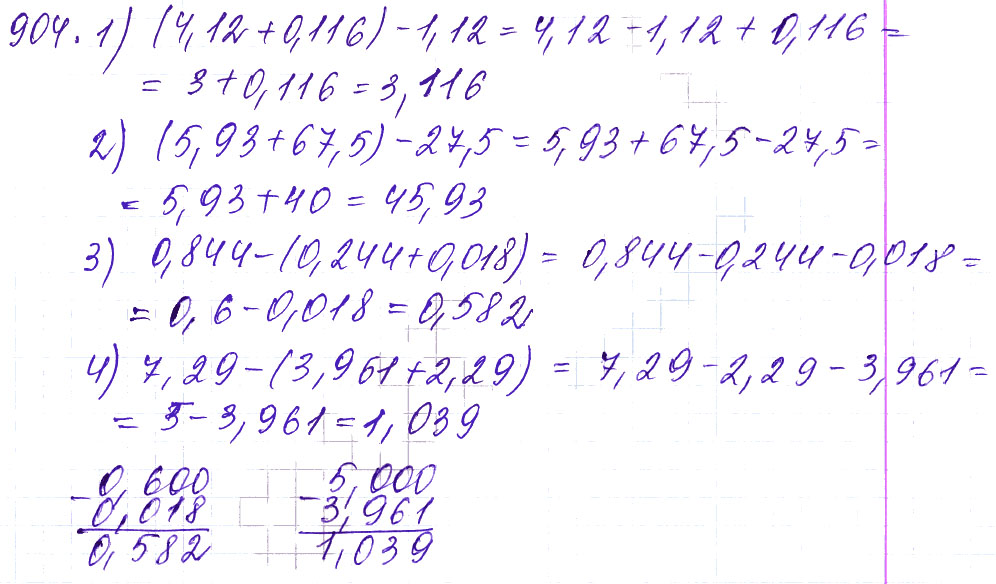 904. 1) (4,12+0,116)-1,12=4,12-1,12+0,116=
= 3+0,116=3,116
2) (5,93+67,5)-27,5=5,93+67,5-27,5=
= 5,93+40=45,93
3) 0,844-(0,244+0,018)= 0,844-0,244-0,018=
= 0,6-0,018=0,582
4) 7,29-(3,961+2,29)= 7,29-2,29-3,961=
= 5-3,961=1,039
0,600 5,000
-0,018 -3,961
0,582 1,039